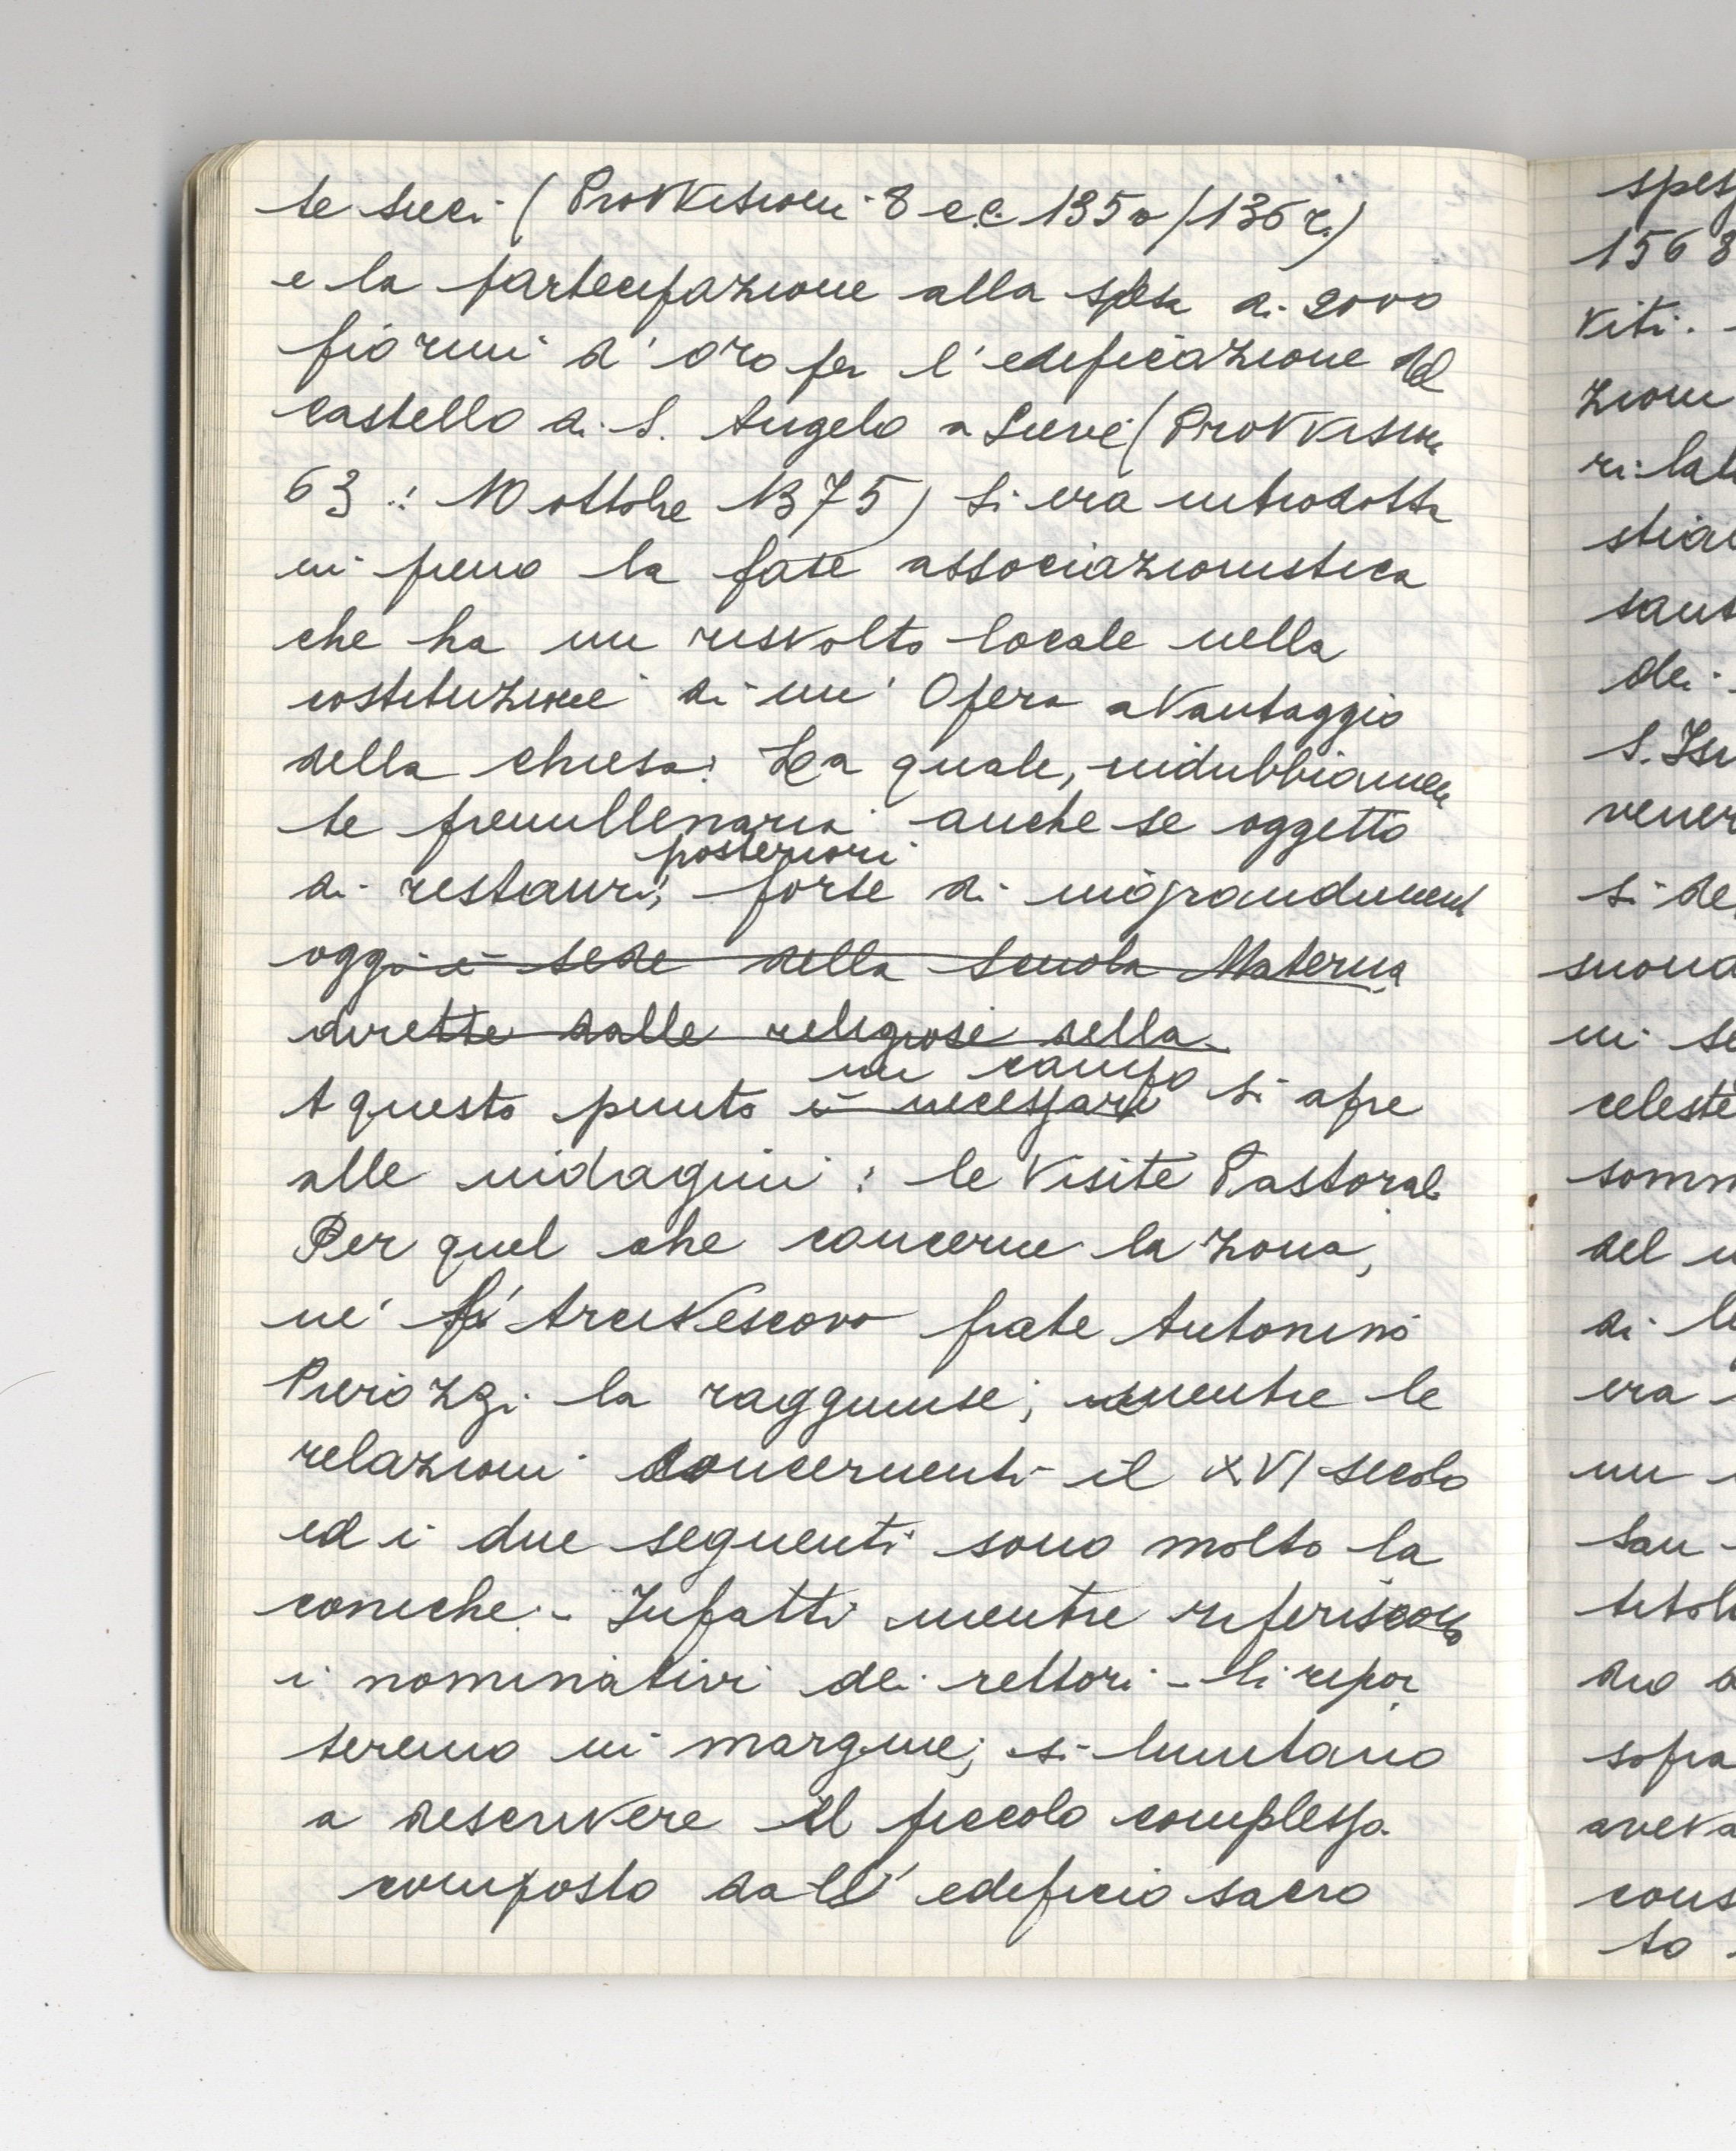 te Seci (Provvisioni 8 c.c. 135v/136r.)
e la partecipazione alla spesa di 2000
fiorini d'oro per l'edificazione del
castello di S. Angelo a Lievè (Provvisioni
63 : 10 ottobre 1375) si era introdotta
in pieno la fase associazionistica
che ha un risvolto locale nella
costituzione di un' Opera a vantaggio
della chiesa. La quale, indubbiamen
te premillenaria anche se oggetto
posteriori
di restauri, forse di ingrandimenti
oggi è sede della Scuola Materna
dirette dalle religiose della
un campo
A questo punto è necessari si apre
alle indagini : le Visite Pastorali
Per quel che concerne la zona,
né l'Arcivescovo frate Antonino
Pierozzi la raggiunse; mentre le
relazioni concernenti il XVI secolo
ed i due seguenti sono molto la
coniche. - Infatti mentre riferiscono
i nominativi dei rettori - li ripor
teremo in margine; si limitano
a descrivere il piccolo complesso
composto dall' edificio sacro
spes
1568
viti.
zioni
ri
stia
sant
dei
S.
vener
si de
suona
in se
celeste
somm
del
di
era
un
San
titol
dio
sopra
aveva
cons
to